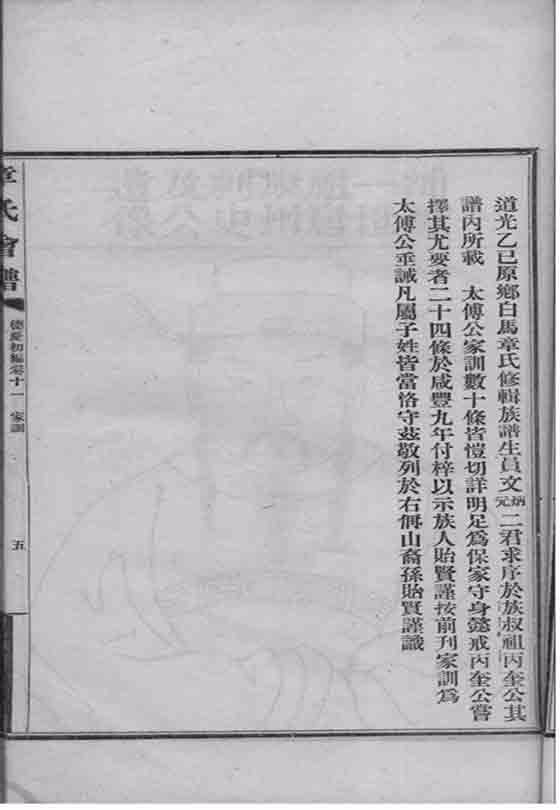 道光乙巳原鄉白馬章氏修輯族譜生員文炳元二君求序於族叔祖丙奎公其
譜內所載　太傅公家訓數十條皆愷切詳明足爲保家守身懿戒丙奎公嘗
擇其尤要者二十四條於咸豐九年付梓以示族人貽賢謹按前刊家訓爲
太傅公垂誡凡屬子姓皆當恪守茲敬列於右偁山裔孫貽賢謹識
章氏會譜
德慶初編卷十一　家訓
五